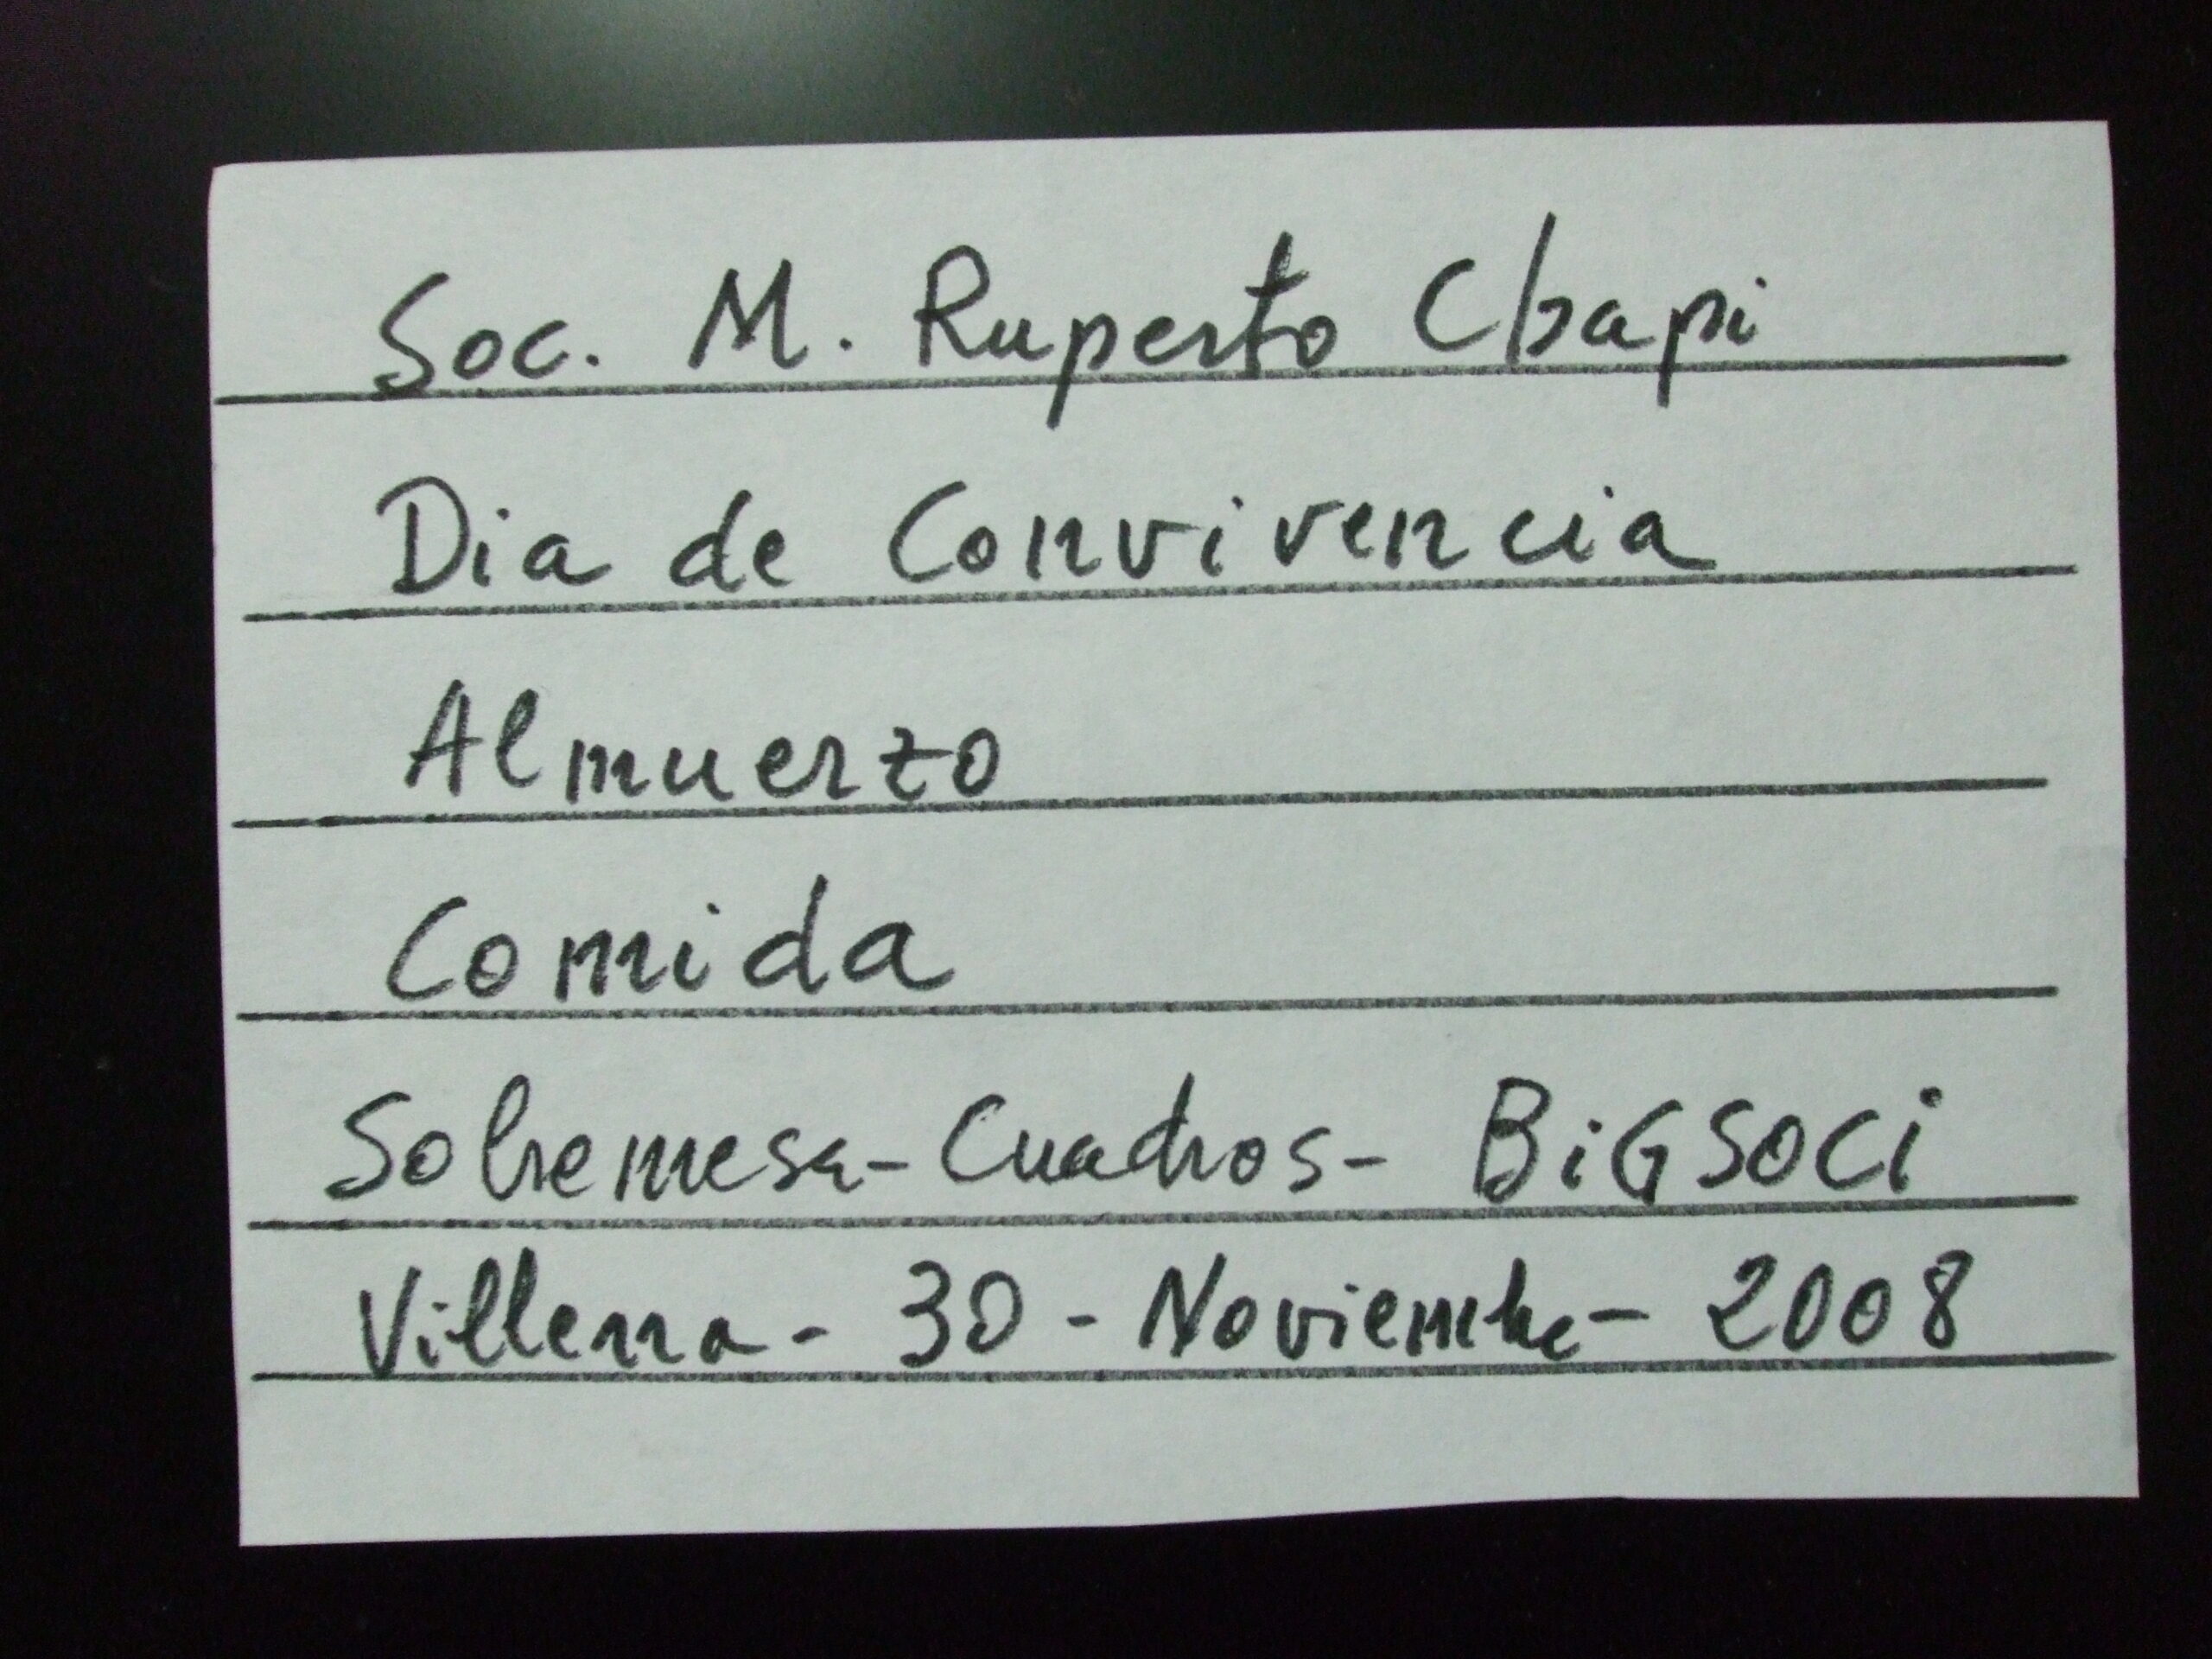 Soc. M. Ruperto Chapi
Dia de Convivencia
Almuerzo
Comida
Sobremesa - Cuadros - BiGSOCi
Villena - 30 - Noviembre - 2008